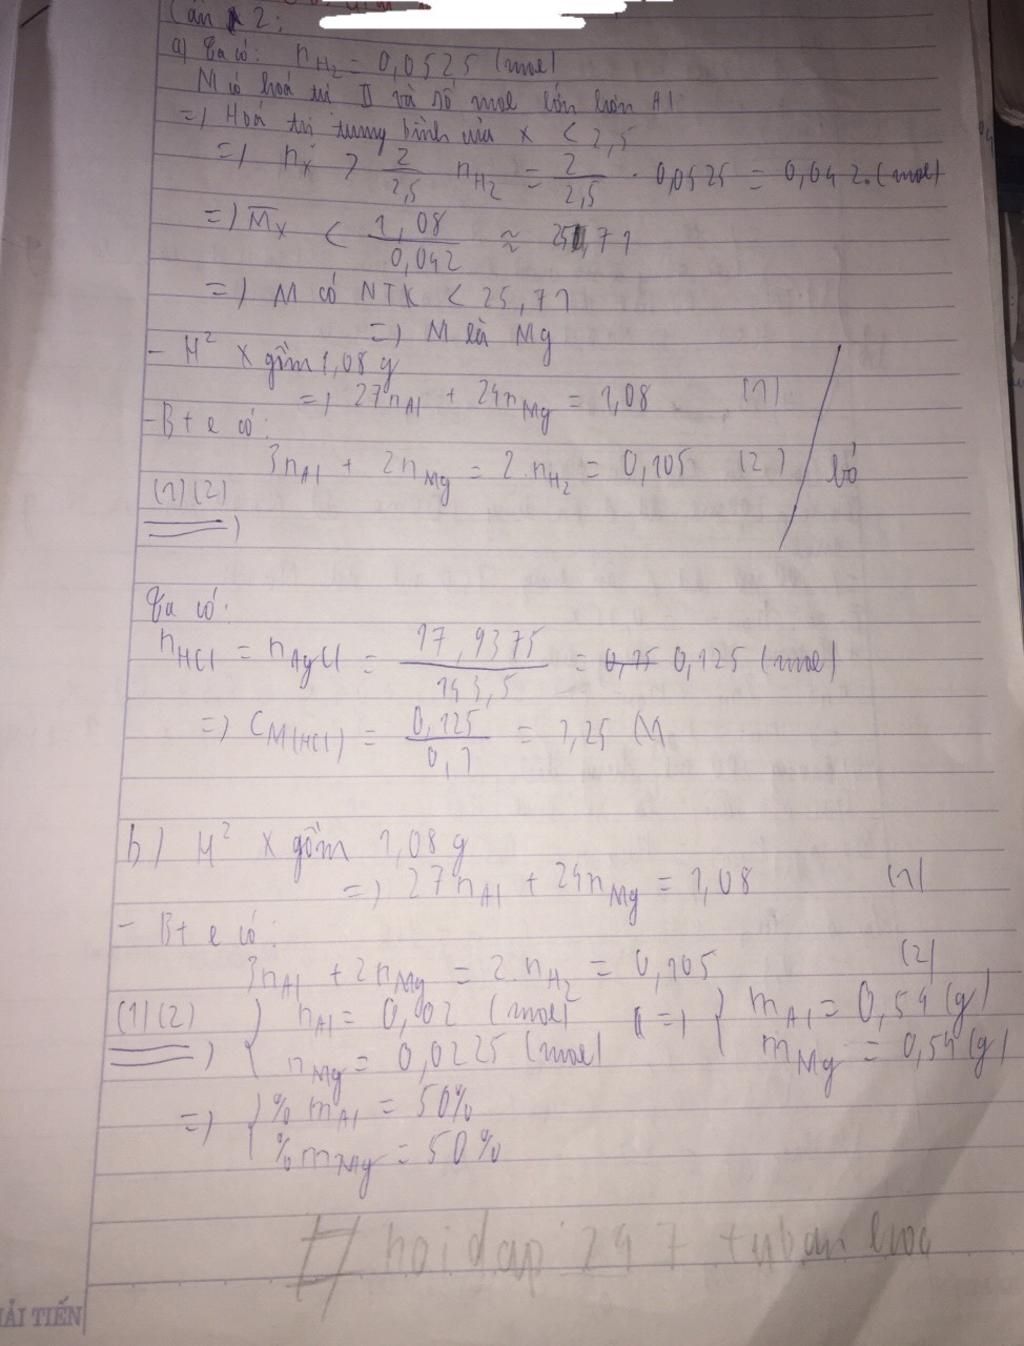 Câu 2:
a) Ta có: nH2 = 0,0525 (mol)
M có hoá trị II và số mol lớn hơn Al
=) Hoá trị trung bình của X < 2,5
=) nX > 2/2,5 nH2 = 2/2,5 . 0,0525 = 0,042 (mol)
=) M̅X < 1,08/0,042 ≈ 25,71
=) M có NTK < 25,71
=) M là Mg
- H² X gồm 1,08 g
=) 27nAl + 24nMg = 1,08 (1)
- Bt e có:
3nAl + 2nMg = 2.nH2 = 0,105 (2) bỏ
(1)(2)
=)
Ta có:
nHCl = nAgCl = 17,9375/143,5 = 0,15 0,125 (mol)
=) CM(HCl) = 0,125/0,1 = 1,25 M
b) H² X gồm 1,08 g
=) 27nAl + 24nMg = 1,08 (1)
- Bt e có:
3nAl + 2nMg = 2.nH2 = 0,105 (2)
(1)(2) =) { nAl = 0,02 (mol) (=) { mAl = 0,54 (g)
nMg = 0,0225 (mol) mMg = 0,54 (g)
=) { % mAl = 50%
% mMg = 50%
#hoidap247 tuban
ẢI TIẾN